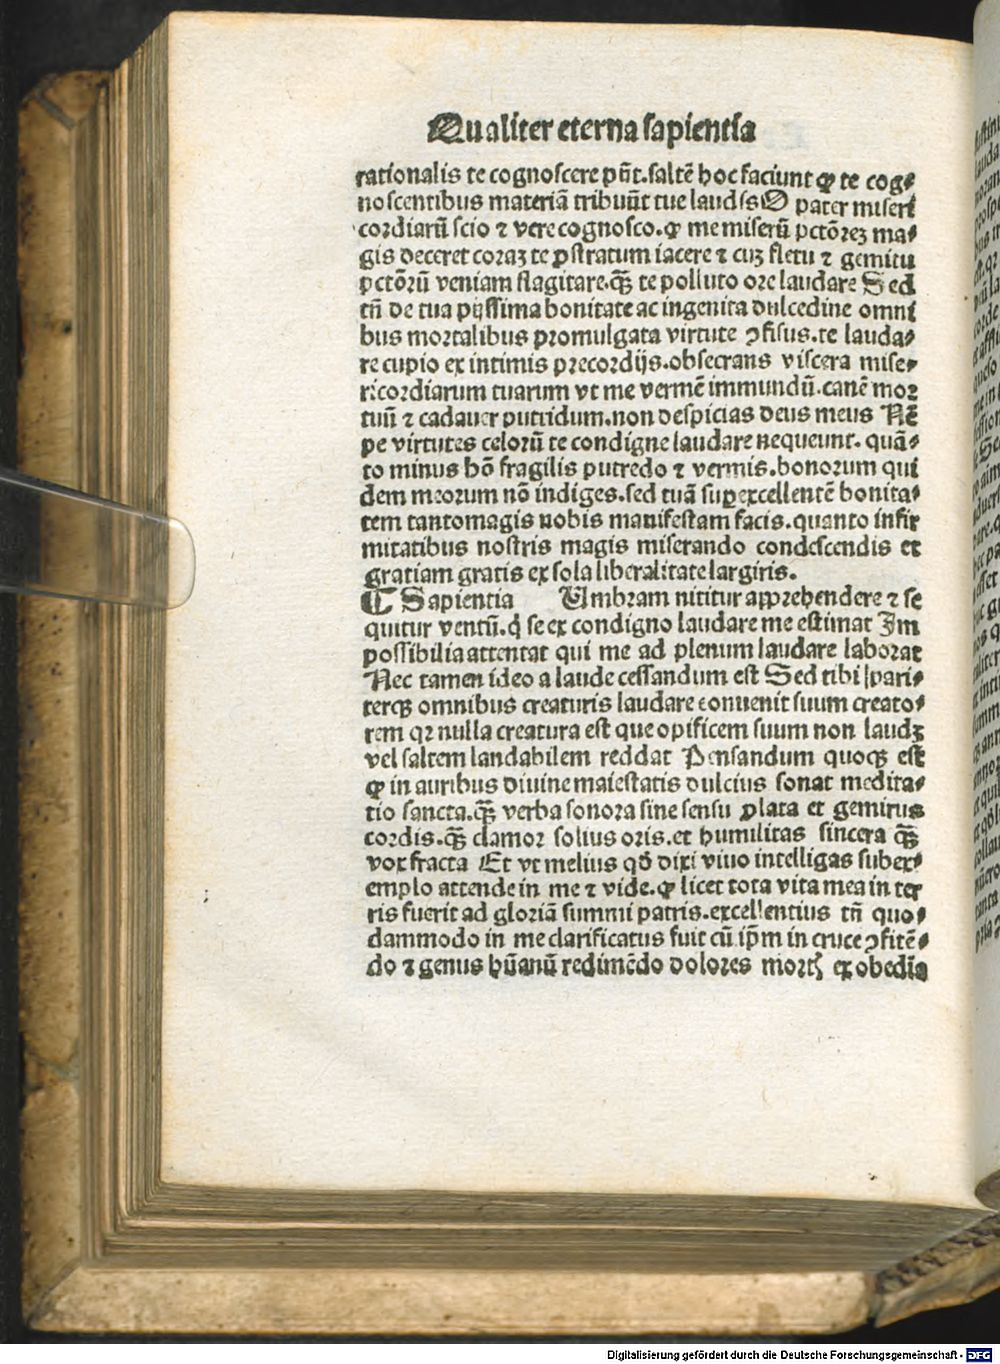 Qualiter eterna sapientia
rationalis te cognoscere pñt. saltē hoc faciunt ꝙ te cog⸗
noscentibus materiā tribuūt tue laudis O pater miseri
cordiarū scio ⁊ vere cognosco. ꝙ me miserū pctōreꝫ ma⸗
gis deceret coraꝫ te ꝓstratum iacere ⁊ cuꝫ fletu ⁊ gemitu
pctōrū veniam flagitare. qꝫ̄ te polluto ore laudare Sed
tñ de tua pijssima bonitate ac ingenita dulcedine omni
bus mortalibus promulgata virtute ꝯfisus. te lauda⸗
re cupio ex intimis precordijs. obsecrans viscera mise⸗
ricordiarum tuarum vt me vermē immundū. canē mor
tuū ⁊ cadauer putridum. non despicias deus meus Nē
pe virtutes celorū te condigne laudare nequeunt. quā⸗
to minus hō fragilis putredo ⁊ vermis. bonorum qui
dem meorum nō indiges. sed tuā suꝑexcellentē bonita⸗
tem tantomagis nobis manifestam facis. quanto infir
mitatibus nostris magis miserando condescendis et
gratiam gratis ex sola liberalitate largiris.
¶ Sapientia Umbram nititur apprehendere ⁊ se
quitur ventū. q̇ se ex condigno laudare me estimat Im
possibilia attentat qui me ad plenum laudare laborat
Nec tamen ideo a laude cessandum est Sed tibi pari⸗
terqꝫ omnibus creaturis laudare conuenit suum creato⸗
rem qꝛ nulla creatura est que opificem suum non laudꝫ
vel saltem landabilem reddat Pensandum quoqꝫ est
ꝙ in auribus diuine maiestatis dulcius sonat medita⸗
tio sancta. qꝫ̄ verba sonora sine sensu ꝓlata et gemitus
cordis. qꝫ̄ clamor solius oris. et humilitas sincera qꝫ̄
vox fracta Et vt melius qđ dixi viuo intelligas suber⸗
emplo attende in me ⁊ vide. ꝙ licet tota vita mea in ter
ris fuerit ad gloriā summi patris. excellentius tñ quo⸗
dammodo in me clarificatus fuit cū ip̄m in cruce ꝯfitē⸗
do ⁊ genus hūanū redimēdo dolores mortꝭ ex obediā
Digitalisierung gefördert durch die Deutsche Forschungsgemeinschaft - DFG